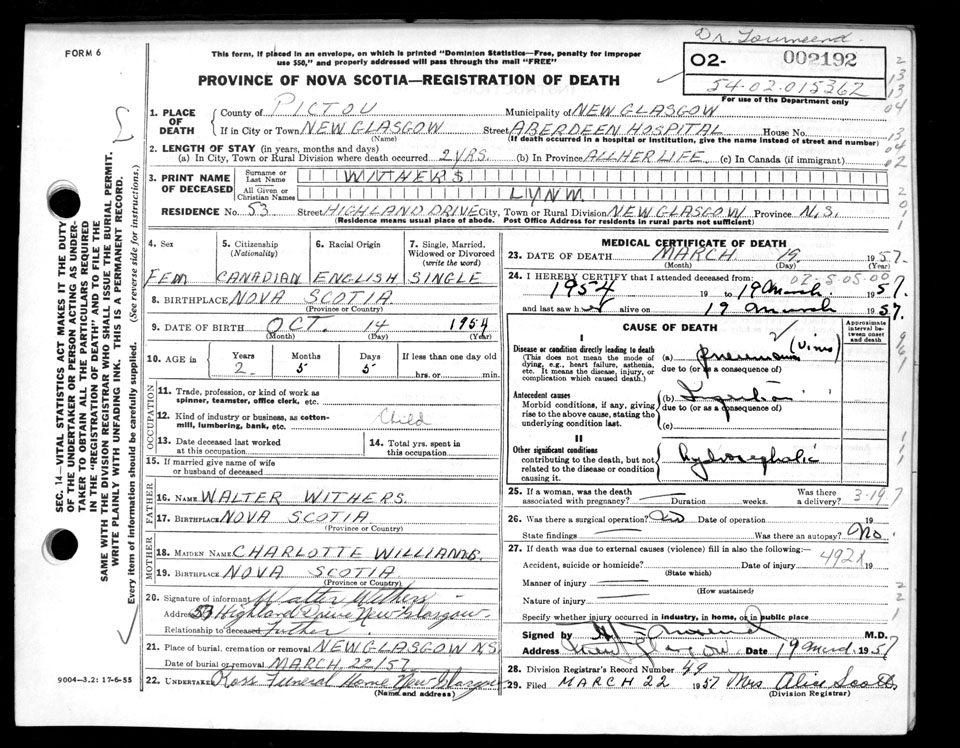 Dr. Townsend
FORM 6
This form, if placed in an envelope, on which is printed "Dominion Statistics—Free, penalty for improper
use $50," and properly addressed will pass through the mail "FREE"
O2- 002192
54-02-015362
For use of the Department only
PROVINCE OF NOVA SCOTIA—REGISTRATION OF DEATH
1. PLACE OF DEATH
County of PICTOU Municipality of NEW GLASGOW
If in City or Town NEW GLASGOW Street ABERDEEN HOSPITAL House No.
(Name) (If death occurred in a hospital or institution, give the name instead of street and number)
2. LENGTH OF STAY (in years, months and days)
(a) In City, Town or Rural Division where death occurred 2 YRS. (b) In Province ALL HER LIFE (c) In Canada (if immigrant)
3. PRINT NAME OF DECEASED
Surname or Last Name WITHERS
All Given or Christian Names LYNN
RESIDENCE No. 53 Street HIGHLAND DRIVE City, Town or Rural Division NEW GLASGOW Province N.S.
(Residence means usual place of abode. Post Office Address for residents in rural parts not sufficient)
4. Sex 5. Citizenship (Nationality) 6. Racial Origin 7. Single, Married, Widowed or Divorced (write the word)
FEM CANADIAN ENGLISH SINGLE
8. BIRTHPLACE NOVA SCOTIA
(Province or Country)
9. DATE OF BIRTH OCT. 14 1954
(Month) (Day) (Year)
10. AGE in Years Months Days If less than one day old
2 5 5 hrs. or min.
OCCUPATION
11. Trade, profession, or kind of work as
spinner, teamster, office clerk, etc.
12. Kind of industry or business, as cotton-
mill, lumbering, bank, etc. Child
13. Date deceased last worked
at this occupation
14. Total yrs. spent in
this occupation
15. If married give name of wife
or husband of deceased
FATHER
16. NAME WALTER WITHERS.
17. BIRTHPLACE NOVA SCOTIA
(Province or Country)
MOTHER
18. MAIDEN NAME CHARLOTTE WILLIAMS.
19. BIRTHPLACE NOVA SCOTIA
(Province or Country)
20. Signature of informant Walter Withers
Address 53 Highland Drive New Glasgow
Relationship to deceased Father.
21. Place of burial, cremation or removal NEW GLASGOW N.S.
Date of burial or removal MARCH 22/57
22. UNDERTAKER Ross Funeral Home New Glasgow
(Name and address)
9004-3.2: 17-6-55
SEC. 14—VITAL STATISTICS ACT MAKES IT THE DUTY
OF THE UNDERTAKER OR PERSON ACTING AS UNDER-
TAKER TO OBTAIN ALL THE PARTICULARS REQUIRED
IN THE "REGISTRATION OF DEATH" AND TO FILE THE
SAME WITH THE DIVISION REGISTRAR WHO SHALL ISSUE THE BURIAL PERMIT.
WRITE PLAINLY WITH UNFADING INK. THIS IS A PERMANENT RECORD.
Every item of information should be carefully supplied. (See reverse side for instructions.)
MEDICAL CERTIFICATE OF DEATH
23. DATE OF DEATH MARCH 19. 1957
(Month) (Day) (Year)
24. I HEREBY CERTIFY that I attended deceased from: 02-5-05-00
1954 19 to 19 March 1957.
and last saw her alive on 19 March 1957.
CAUSE OF DEATH
Approximate interval between onset and death
I
Disease or condition directly leading to death
(This does not mean the mode of
dying, e.g., heart failure, asthenia,
etc. It means the disease, injury, or
complication which caused death.)
(a) pneumonia (Virus)
due to (or as a consequence of)
Antecedent causes
Morbid conditions, if any, giving
rise to the above cause, stating the
underlying condition last.
(b)
due to (or as a consequence of)
(c)
II
Other significant conditions
contributing to the death, but not
related to the disease or condition
causing it.
hydrocephalic
25. If a woman, was the death
associated with pregnancy? Duration weeks. Was there a delivery? 3-19.7
26. Was there a surgical operation? No Date of operation 19
State findings Was there an autopsy? No.
27. If death was due to external causes (violence) fill in also the following:—
Accident, suicide or homicide? Date of injury 492x 19
(State which)
Manner of injury
(How sustained)
Nature of injury
Specify whether injury occurred in industry, in home, or in public place
Signed by M.D.
Address New Glasgow Date 19 March 1957
28. Division Registrar's Record Number 49
29. Filed MARCH 22 1957 Mrs Alice Scott
(Division Registrar)